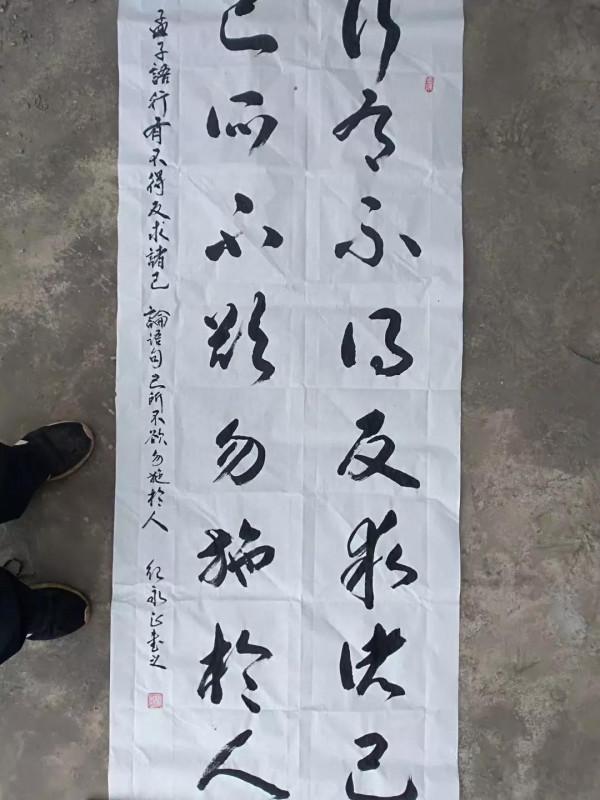 行有不得反求诸己
己所不欲勿施於人
孟子語行有不得反求諸己 論語句己所不欲勿施於人 永书之